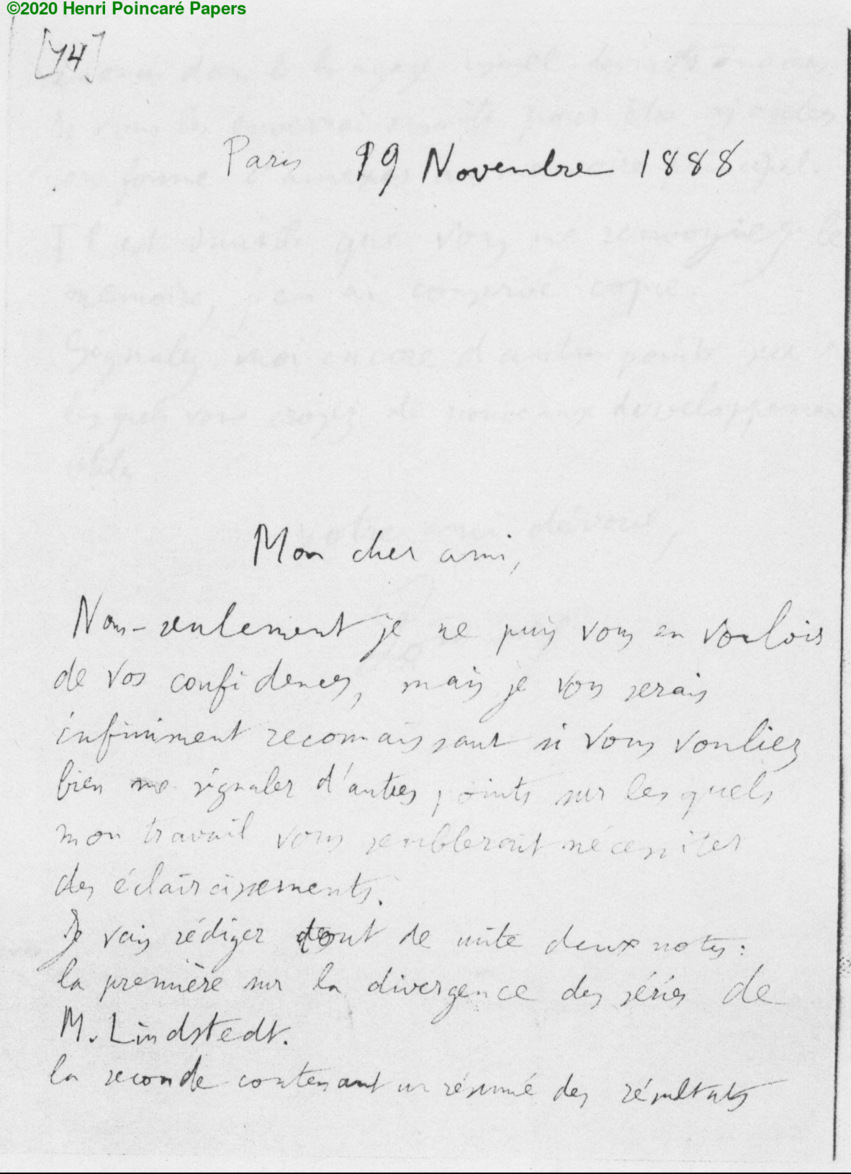 ©2020 Henri Poincaré Papers
[74]
Paris 19 Novembre 1888
Mon cher ami,
Non-seulement je ne puis vous en vouloir
de vos confidences, mais je vous serais
infiniment reconnaissant si vous vouliez
bien me signaler d'autres points sur lesquels
mon travail vous semblerait nécessiter
des éclaircissements.
Je vais rédiger tout de suite deux notes:
la première sur la divergence des séries de
M. Lindstedt.
la seconde contenant un résumé des résultats